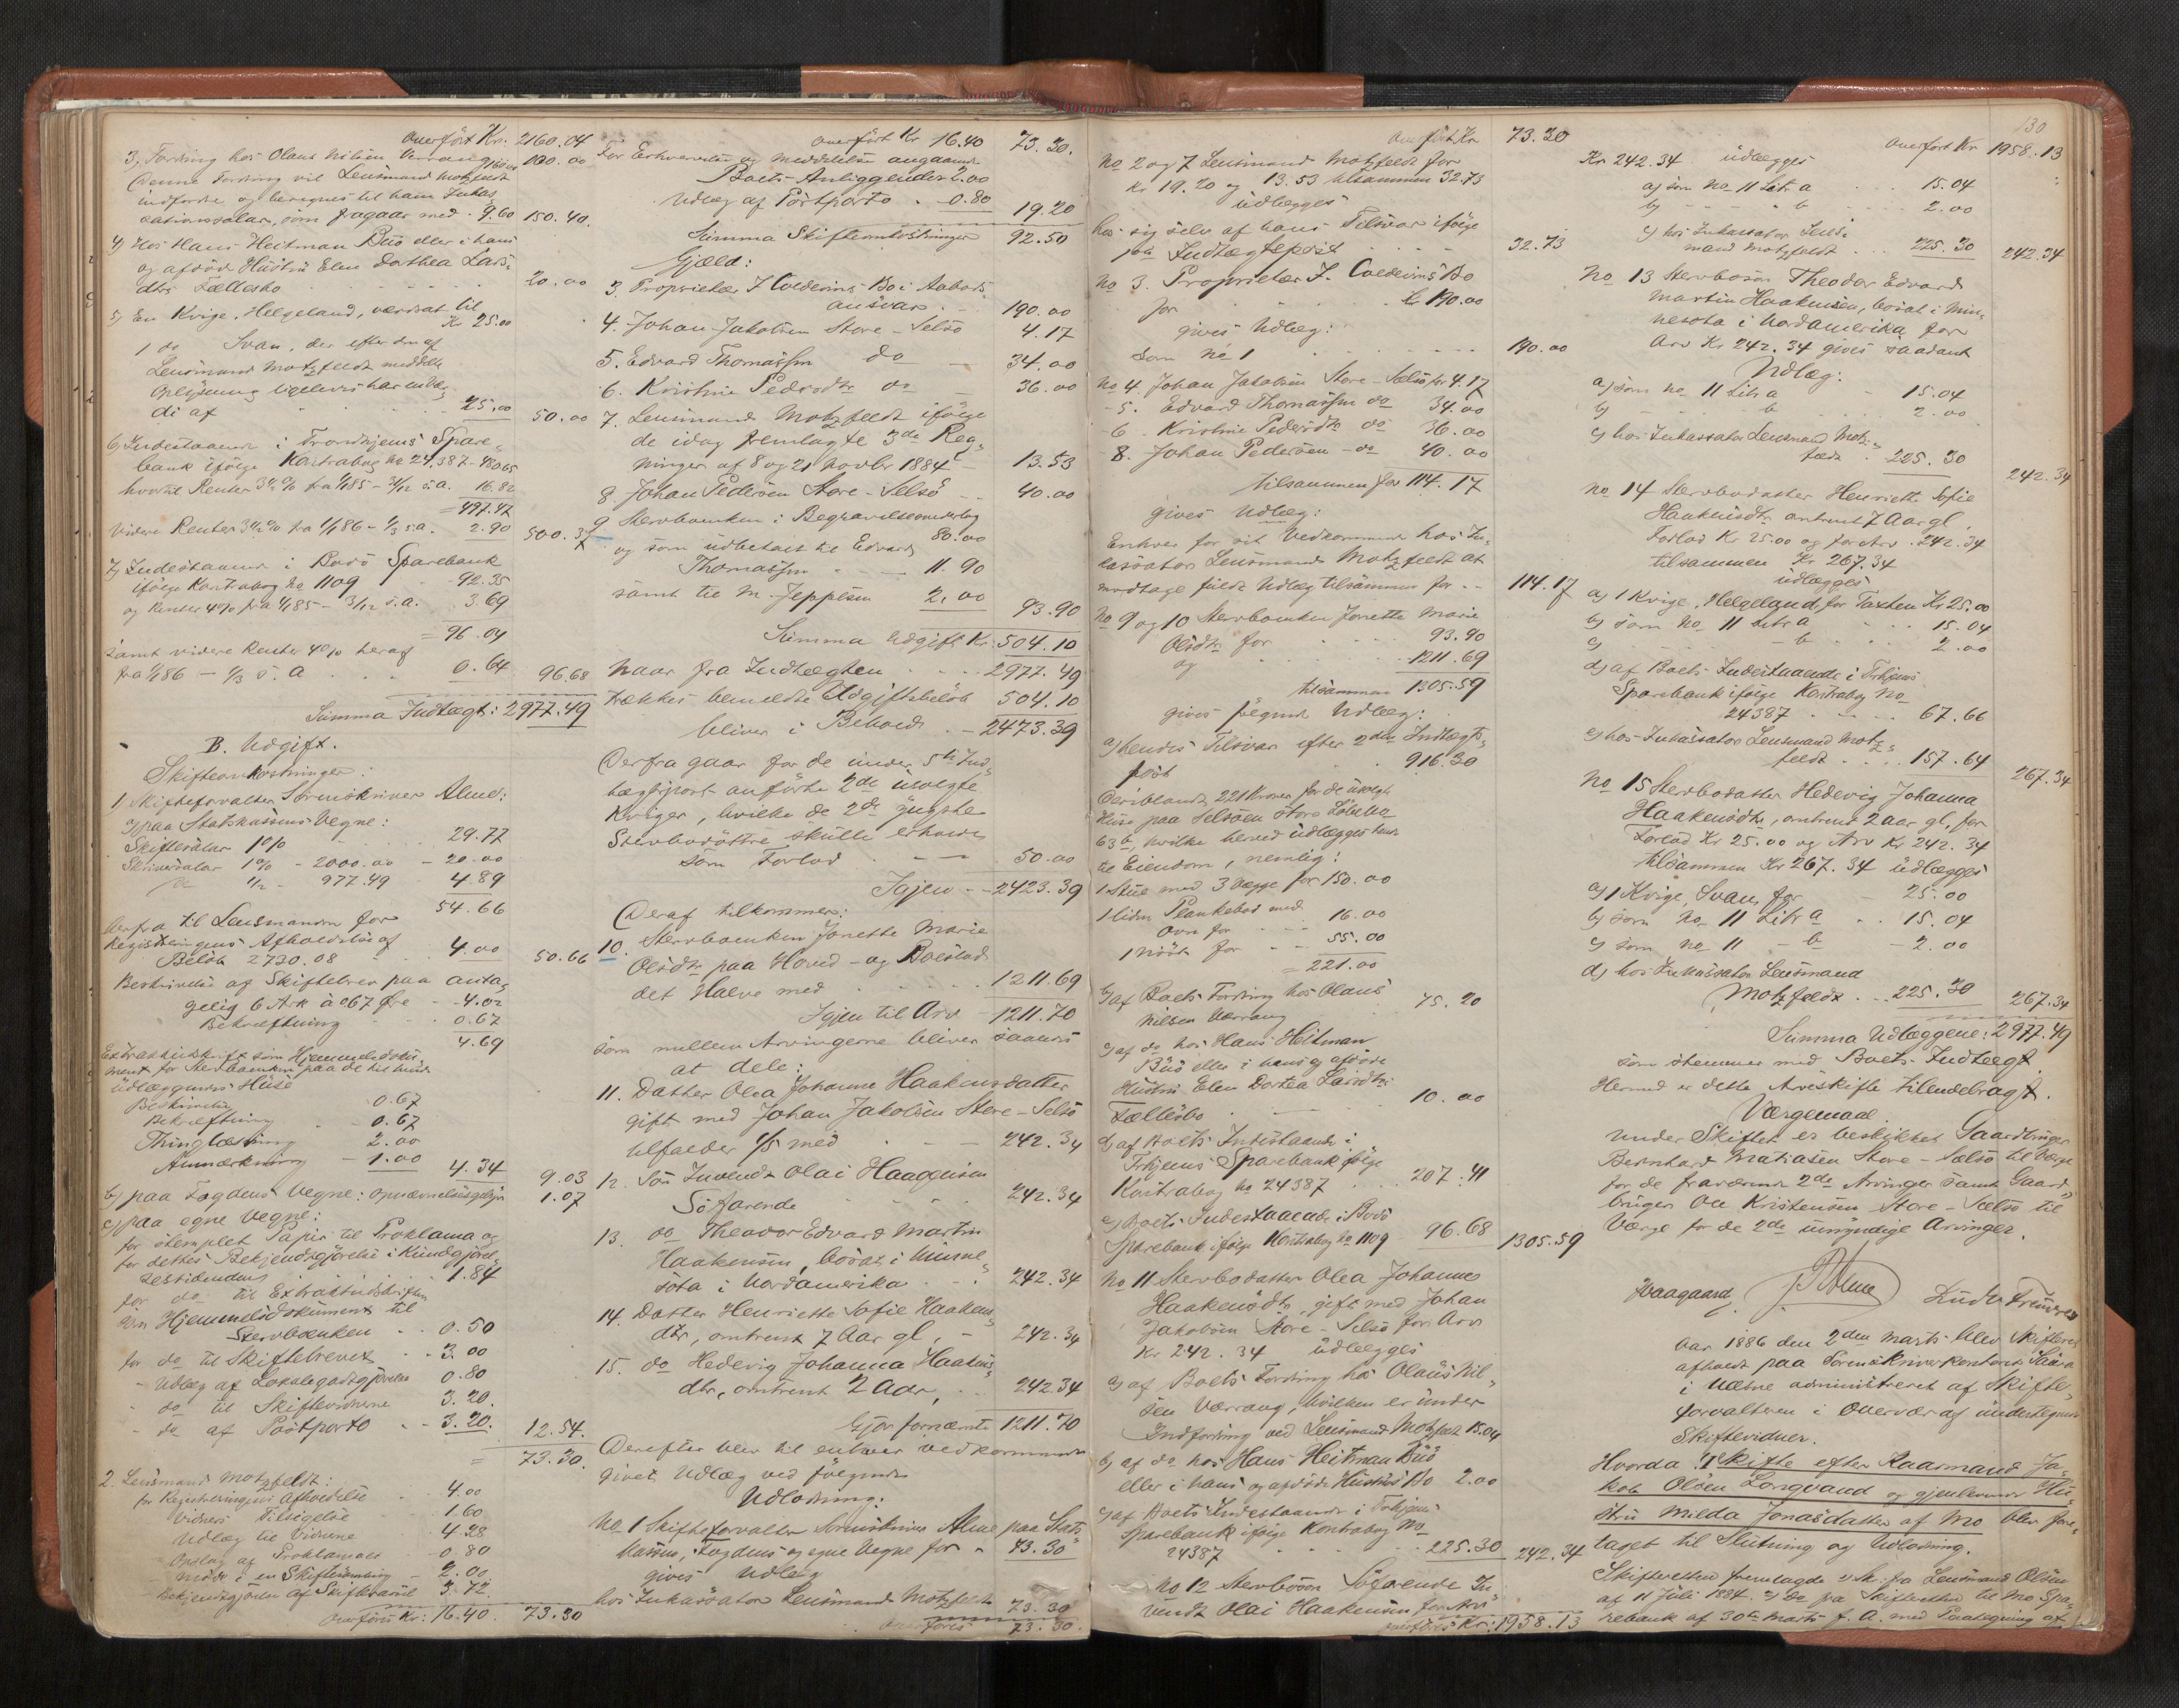 Overført Kr. 2160.04
3, Fordring hos Olaus Nilsen Værrang 160.00
(denne Fordring vil Lensmand Motzfeldt
indfordre og beregnes til ham Inkas-
sationssalær, som fragaar med 9.60 150.40.
4, Hos Hans Heitman Buø eller i hans
og afdøde Hustru Elen Dorthea Lars-
dtr Fællesbo 20.00
5, En Kvige, Helgeland, værdsat til
Kr 25.00
1 do Svan, der efter den af
Lensmand Motzfeldt meddelte
Oplysning ligeledes har Vær-
di af 25.00 50.00
6, Indestaaende i Trondhjems Spare-
bank ifølge Kontrabog No 24,387 - 480.65
hvortil Renter 3½% fra 1/1 85 - 31/12 s.a. 16.82
= 497.47
Videre Renter 3½% fra 1/1 86 - 1/3 s.a. 2.90 500.37
7, Indestaaende i Bodø Sparebank
ifølge Kontrabog No 1109 92.35
og Renter 4% fra 1/1 85 - 31/12 s.a. 3.69
= 96.04
samt videre Renter 4% heraf
fra 1/1 86 - 1/3 s. a 0.64 96.68
Summa Indtægt: 2977.49
B. Udgift.
Skifteomkostninger:
1, Skifteforvalter Sorenskriver Alme:
a, paa Statskassens Vegne:
Skiftesalær 1% 29.77
Skriversalær 1% - 2000.00 - 20.00
do ½ - 977.49 4.89
54.66
herfra til Lensmanden for
Registreringens Afholdelse af
Beløb 2730.08 4.00 50.66
Beskrivelse af Skiftebrev paa anta-
gelig 6 Ark à 067 Øre - 4.02
Bekræftning 0.67
4.69
Extraktudskrift som Hjemmelsdoku-
ment for Stervboenken paa de til hende
udlæggendes Huse
Beskrivelse 0.67
Bekræftning 0.67
Thinglæsning 2.00
Anmærkning - 1.00 4.34 9.03
b, paa Fogdens Vegne: Opnævnelsesgebyr 1.07
c, paa egne Vegne:
for stemplet Papir til Proklama og
for dettes Bekjendtgjørelse i Kundgjørel-
sestidende 1.84
for do til Extraktudskriften
som Hjemmelsdokument til
Stervboenken 0.50
for do til Skiftebrevet 3.00
- Udlæg af Lokalegodtgjørelse 0.80
- do til Skiftevidnerne 3.20.
- do af Postporto 3.20. 12.54.
= 73.30.
2. Lensmand Motzfeldt:
for Registreringens Afholdelse 4.00
Vidners Tilsigelse 1.60
Udlæg til Vidnerne 4.28
Opslag af Proklamaet 0.80
Møde i en Skiftesamling - 2.00.
Bekjendtgjørelse af Skiftevarsel 3.72.
Overføres Kr: 16.40. 73.30
Overført Kr 16.40 73.30.
For Erhvervelse og Meddelelse angaaende
Boets Anliggender 2.00
Udlæg af Postporto - 0.80 19.20
Summa Skifteomkostninger 92.50
Gjæld:
3. Proprietær J Coldevins Bo i Aabods-
ansvar 190.00
4. Johan Jakobsen Store-Selsø 4.17
5. Edvard Thomassen do 34.00
6. Kristine Pedersdtr do 36.00
7. Lensmand Motzfeldt ifølge
de idag fremlagte 3de Reg-
ninger af 8 og 21 Novbr 1884 - 13.53
8. Johan Pedersen Store-Selsø 40.00
9 Stervboenken i Begravelsesomkostn
80.00
og som udbetalt til Edvard
Thomassen 11.90
samt til M. Jeppesen 2.00 93.90
Summa Udgift Kr: 504.10
Naar fra Indtægten 2977.49
trækkes bemeldte Udgiftsbeløb 504.10
bliver i Behold - 2473.39
Derfra gaar for de under 5te Ind-
tægtspost anførte 2de usolgte
Kviger, hvilke de 2de yngste
Stervbodøttre skulle erholde
som Forlod 50.00
Igjen - 2423.39
Deraf tilkommer:
10. Stervboenken Jonette Marie
Olsdtr paa Hoved- og Boeslod
det Halve med 1211.69
Igjen til Arv - 1211.70
som mellem Arvingerne bliver saaledes
at dele:
11. Datter Olea Johanne Haakensdatter
gift med Johan Jakobsen Store-Selsø
tilfalder 1/5 med 242.34
12. Søn Inventz Olai Haagensen
Søfarende 242.34
13. do Theodor Edvard Martin
Haakensen, bosat i Minne-
sota i Nordamerika 242.34
14. Datter Henriette Sofie Haakens-
dtr, omtrent 7 Aar gl. - 242.34
15. do Hedevig Johanna Haakens-
dtr, omtrent 2 Aar 242.34
Gjør fornævnte 1211.70
Derefter blev til enhver vedkommende
givet Udlæg ved følgende
Udlodning:
No 1 Skifteforvalter Sorenskriver Alme paa Stats-
kassens, Fogdens og egne Vegne for 73.30
gives Udlæg
hos Inkassator Lensmand Motzfeldt 73.30
overføres 73.30.
Overført Kr 73.30
No 2 og 7 Lensmand Motzfeldt for
Kr 19.20 og 13.53 tilsammen 32.73
udlægges
hos sig selv af hans Tilsvar ifølge
1ste Indtægtspost 32.73
No 3. Proprietær J. Coldevins Bo
for Kr 190.00
gives Udlæg:
som No 1 190.00
No 4. Johan Jakobsen Store-Selsø for 4.17
- 5. Edvard Thomassen do 34.00
- 6. Kristine Pedersdtr do 36.00
- 8. Johan Pedersen - do 40.00
tilsammen for 114.17
gives Udlæg:
Enhver for sit Vedkommende hos In-
kassator Lensmand Motzfeldt at
modtage fuldt Udlæg tilsammen for 114.17
No 9 og 10 Stervboenken Jonette Marie
Olsdtr for 93.90
og 1211.69
tilsammen 1305.59
gives følgende Udlæg:
a, hendes Tilsvar efter 2den Indtægts-
post 916.30
(deriblandt 221 Kroner for de usolgte
Huse paa Selsøen Store Løbeno
63b, hvilke herved udlægges hende
til Eiendom, nemlig:
1 Stue med 3 Vægge for 150.00
1 liden Plankebod med
Ovn for 16.00
1 Nøst for 55.00
= 221.00
b, af Boets Fordring hos Olaus
Nilsen Værrang 75.20
c, af do hos Hans Heitman
Buø eller i hans og afdøde
Hustru Elen Dortea Larsdtr
Fællesbo 10.00
d, af Boets Indestaaende i
Trhjems Sparebank ifølge
Kontrabog No 24387 207.41
e, Boets Indestaaende i Bodø
Sparebank ifølge Kontrabog No 1109 96.68 1305.59
No 11 Stervbodatter Olea Johannes
Haakensdtr, gift med Johan
Jakobsen Store-Selsø for Arv
Kr 242.34 udlægges
a, af Boets Fordring hos Olaus Nil-
sen Værrang, hvilken er under
Indfordring ved Lensmand Motzfeldt 15.04
b, af do hos Hans Heitman Buø
eller i hans og afdøde Hustrus Bo 2.00
c, af Boets Indestaaende i Trhjems
Sparebank ifølge Kontrabog No
24387 225.30 242.34
No 12 Stervbosøn Søfarende In-
ventz Olai Haakensen for Arv
overføres Kr: 1958.13
130
Overført Kr 1958.13
Kr 242.34 udlægges
a, som No 11 Litr a 15.04
b, - - - b 2.00
c, hos Inkassator Lens-
mand Motzfeldt 225.30 242.34
No 13 Stervbosøn Theodor Edvard
Martin Haakensen, bosat i Min-
nesota i Nordamerika for
Arv Kr 242.34 gives saadant
Udlæg:
a, som No 11 Litr a 15.04
b, - b 2.00
c, hos Inkassator Lensmand Motz-
feldt 225.30 242.34
No 14 Stervbodatter Henriette Sofie
Haakensdtr omtrent 7 Aar gl.
Forlod Kr 25.00 og for Arv 242.34
tilsammen Kr 267.34
udlægges
a, 1 Kvige, Helgeland, for Taxten Kr 25.00
b, som No 11 Litr a 15.04
c, - b 2.00
d, af Boets Indestaaende i Trhjems
Sparebank ifølge Kontrabog No
24387 67.66
e, hos Inkassator Lensmand Motz-
feldt 157.64 267.34
No 15 Stervbodatter Hedevig Johanna
Haakensdtr, omtrent 2 Aar gl, for
Forlod Kr 25.00 og Arv Kr 242.34
tilsammen Kr 267.34 udlægges
a, 1 Kvige, Svan, for 25.00
b, som No 11 Litr a 15.04
c, som No 11 - b - 2.00
d, hos Inkassator Lensmand
Motzfeldt 225.30 267.34
Summa Udlæggene: 2977.49
som stemmer med Boets Indtægt.
Hermed er dette Arveskifte tilendebragt.
Værgemaal.
Under Skiftet er beskikket Gaardbruger
Bernhard Matiasen Store-Selsø til Værge
for de fraværende 2de Arvinger samt Gaard-
bruger Ole Kristensen Store-Selsø til
Værge for de 2de umyndige Arvinger.
Haagaard Alme
Aar 1886 den 2den Marts blev Skifteret
afholdt paa Sorenskriverkontoret Saura
i Næsne administreret af Skifte-
forvalteren i Overvær af undertegnede
Skiftevidner.
Hvorda: Skifte efter Kaarmand Ja-
kob Olsen Langvand og gjenlevende Hu-
stru Milda Jonasdatter af Mo blev fore-
taget til Slutning og Udlodning.
Skifteretten fremlagde 1) Sk: fra Lensmand Olsen
af 11 Juli 1884. 2) Do fra Skifteretten til Mo Spa-
rebank af 30te Marts f. A. med Paategning af